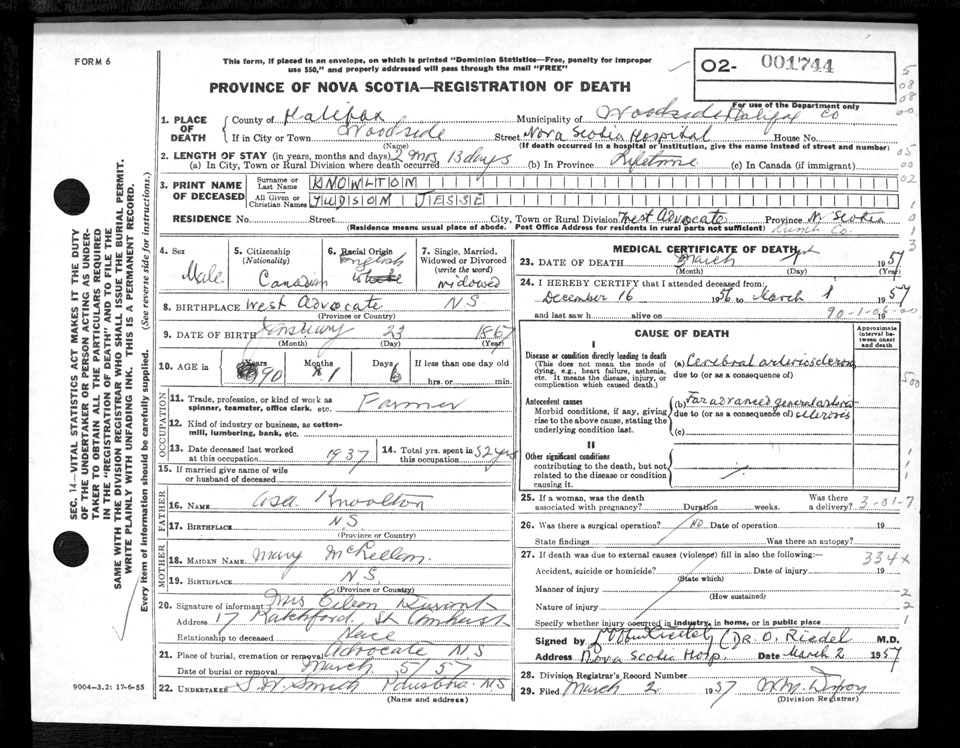 FORM 6
This form, if placed in an envelope, on which is printed "Dominion Statistics—Free, penalty for improper
use $50," and properly addressed will pass through the mail "FREE"
PROVINCE OF NOVA SCOTIA—REGISTRATION OF DEATH
O2- 001744
For use of the Department only
1. PLACE OF DEATH
County of Halifax Municipality of Woodside Halifax Co
If in City or Town Woodside Street Nova Scotia Hospital House No.
(Name) (If death occurred in a hospital or institution, give the name instead of street and number)
2. LENGTH OF STAY (in years, months and days)
(a) In City, Town or Rural Division where death occurred 2 mos 13 days (b) In Province Lifetime (c) In Canada (if immigrant)
3. PRINT NAME OF DECEASED
Surname or Last Name KNOWLTON
All Given or Christian Names JUDSON JESSE
RESIDENCE No. Street City, Town or Rural Division West Advocate Province N Scotia
(Residence means usual place of abode. Post Office Address for residents in rural parts not sufficient) Cumb Co.
4. Sex Male
5. Citizenship (Nationality) Canadian
6. Racial Origin English
7. Single, Married, Widowed or Divorced (write the word) widowed
8. BIRTHPLACE West Advocate NS
(Province or Country)
9. DATE OF BIRTH January 23 1867
(Month) (Day) (Year)
10. AGE in Years 90 Months 1 Days 6 If less than one day old
hrs. or min.
OCCUPATION
11. Trade, profession, or kind of work as
spinner, teamster, office clerk, etc. Farmer
12. Kind of industry or business, as cotton-
mill, lumbering, bank, etc.
13. Date deceased last worked
at this occupation 1937
14. Total yrs. spent in
this occupation 52 yrs
15. If married give name of wife
or husband of deceased
FATHER
16. NAME Asa Knowlton
17. BIRTHPLACE NS
(Province or Country)
MOTHER
18. MAIDEN NAME Mary
19. BIRTHPLACE N.S.
(Province or Country)
20. Signature of informant Mrs Eileen Durant
Address 17 Ratchford St Amherst
Relationship to deceased Neice
21. Place of burial, cremation or removal Advocate NS
Date of burial or removal March 5/57
22. UNDERTAKER S W Smith Parrsboro NS
(Name and address)
MEDICAL CERTIFICATE OF DEATH
23. DATE OF DEATH March 1st 1957
(Month) (Day) (Year)
24. I HEREBY CERTIFY that I attended deceased from:
December 16 1956 to March 1 1957
and last saw h alive on 19
90-1-06-00
CAUSE OF DEATH
Approximate interval between onset and death
I
Disease or condition directly leading to death
(This does not mean the mode of
dying, e.g., heart failure, asthenia,
etc. It means the disease, injury, or
complication which caused death.)
(a) Cerebral arteriosclerosis
due to (or as a consequence of)
Antecedent causes
Morbid conditions, if any, giving
rise to the above cause, stating the
underlying condition last.
(b) Far advanced general arterio
due to (or as a consequence of) sclerosis
(c)
II
Other significant conditions
contributing to the death, but not
related to the disease or condition
causing it.
25. If a woman, was the death
associated with pregnancy? Duration weeks. Was there
a delivery? 3-01-7
26. Was there a surgical operation? No Date of operation 19
State findings Was there an autopsy?
27. If death was due to external causes (violence) fill in also the following:
334x
Accident, suicide or homicide? Date of injury 19
(State which)
Manner of injury
(How sustained)
Nature of injury
Specify whether injury occurred in industry, in home, or in public place
Signed by (DR. O. RIEDEL M.D.
Address Nova Scotia Hosp. Date March 2 1957
28. Division Registrar's Record Number
29. Filed March 2 1957
(Division Registrar)
9004—3.2: 17-6-55
SEC. 14—VITAL STATISTICS ACT MAKES IT THE DUTY
OF THE UNDERTAKER OR PERSON ACTING AS UNDER-
TAKER TO OBTAIN ALL THE PARTICULARS REQUIRED
IN THE "REGISTRATION OF DEATH" AND TO FILE THE
SAME WITH THE DIVISION REGISTRAR WHO SHALL ISSUE THE BURIAL PERMIT.
WRITE PLAINLY WITH UNFADING INK. THIS IS A PERMANENT RECORD.
Every item of information should be carefully supplied. (See reverse side for instructions.)